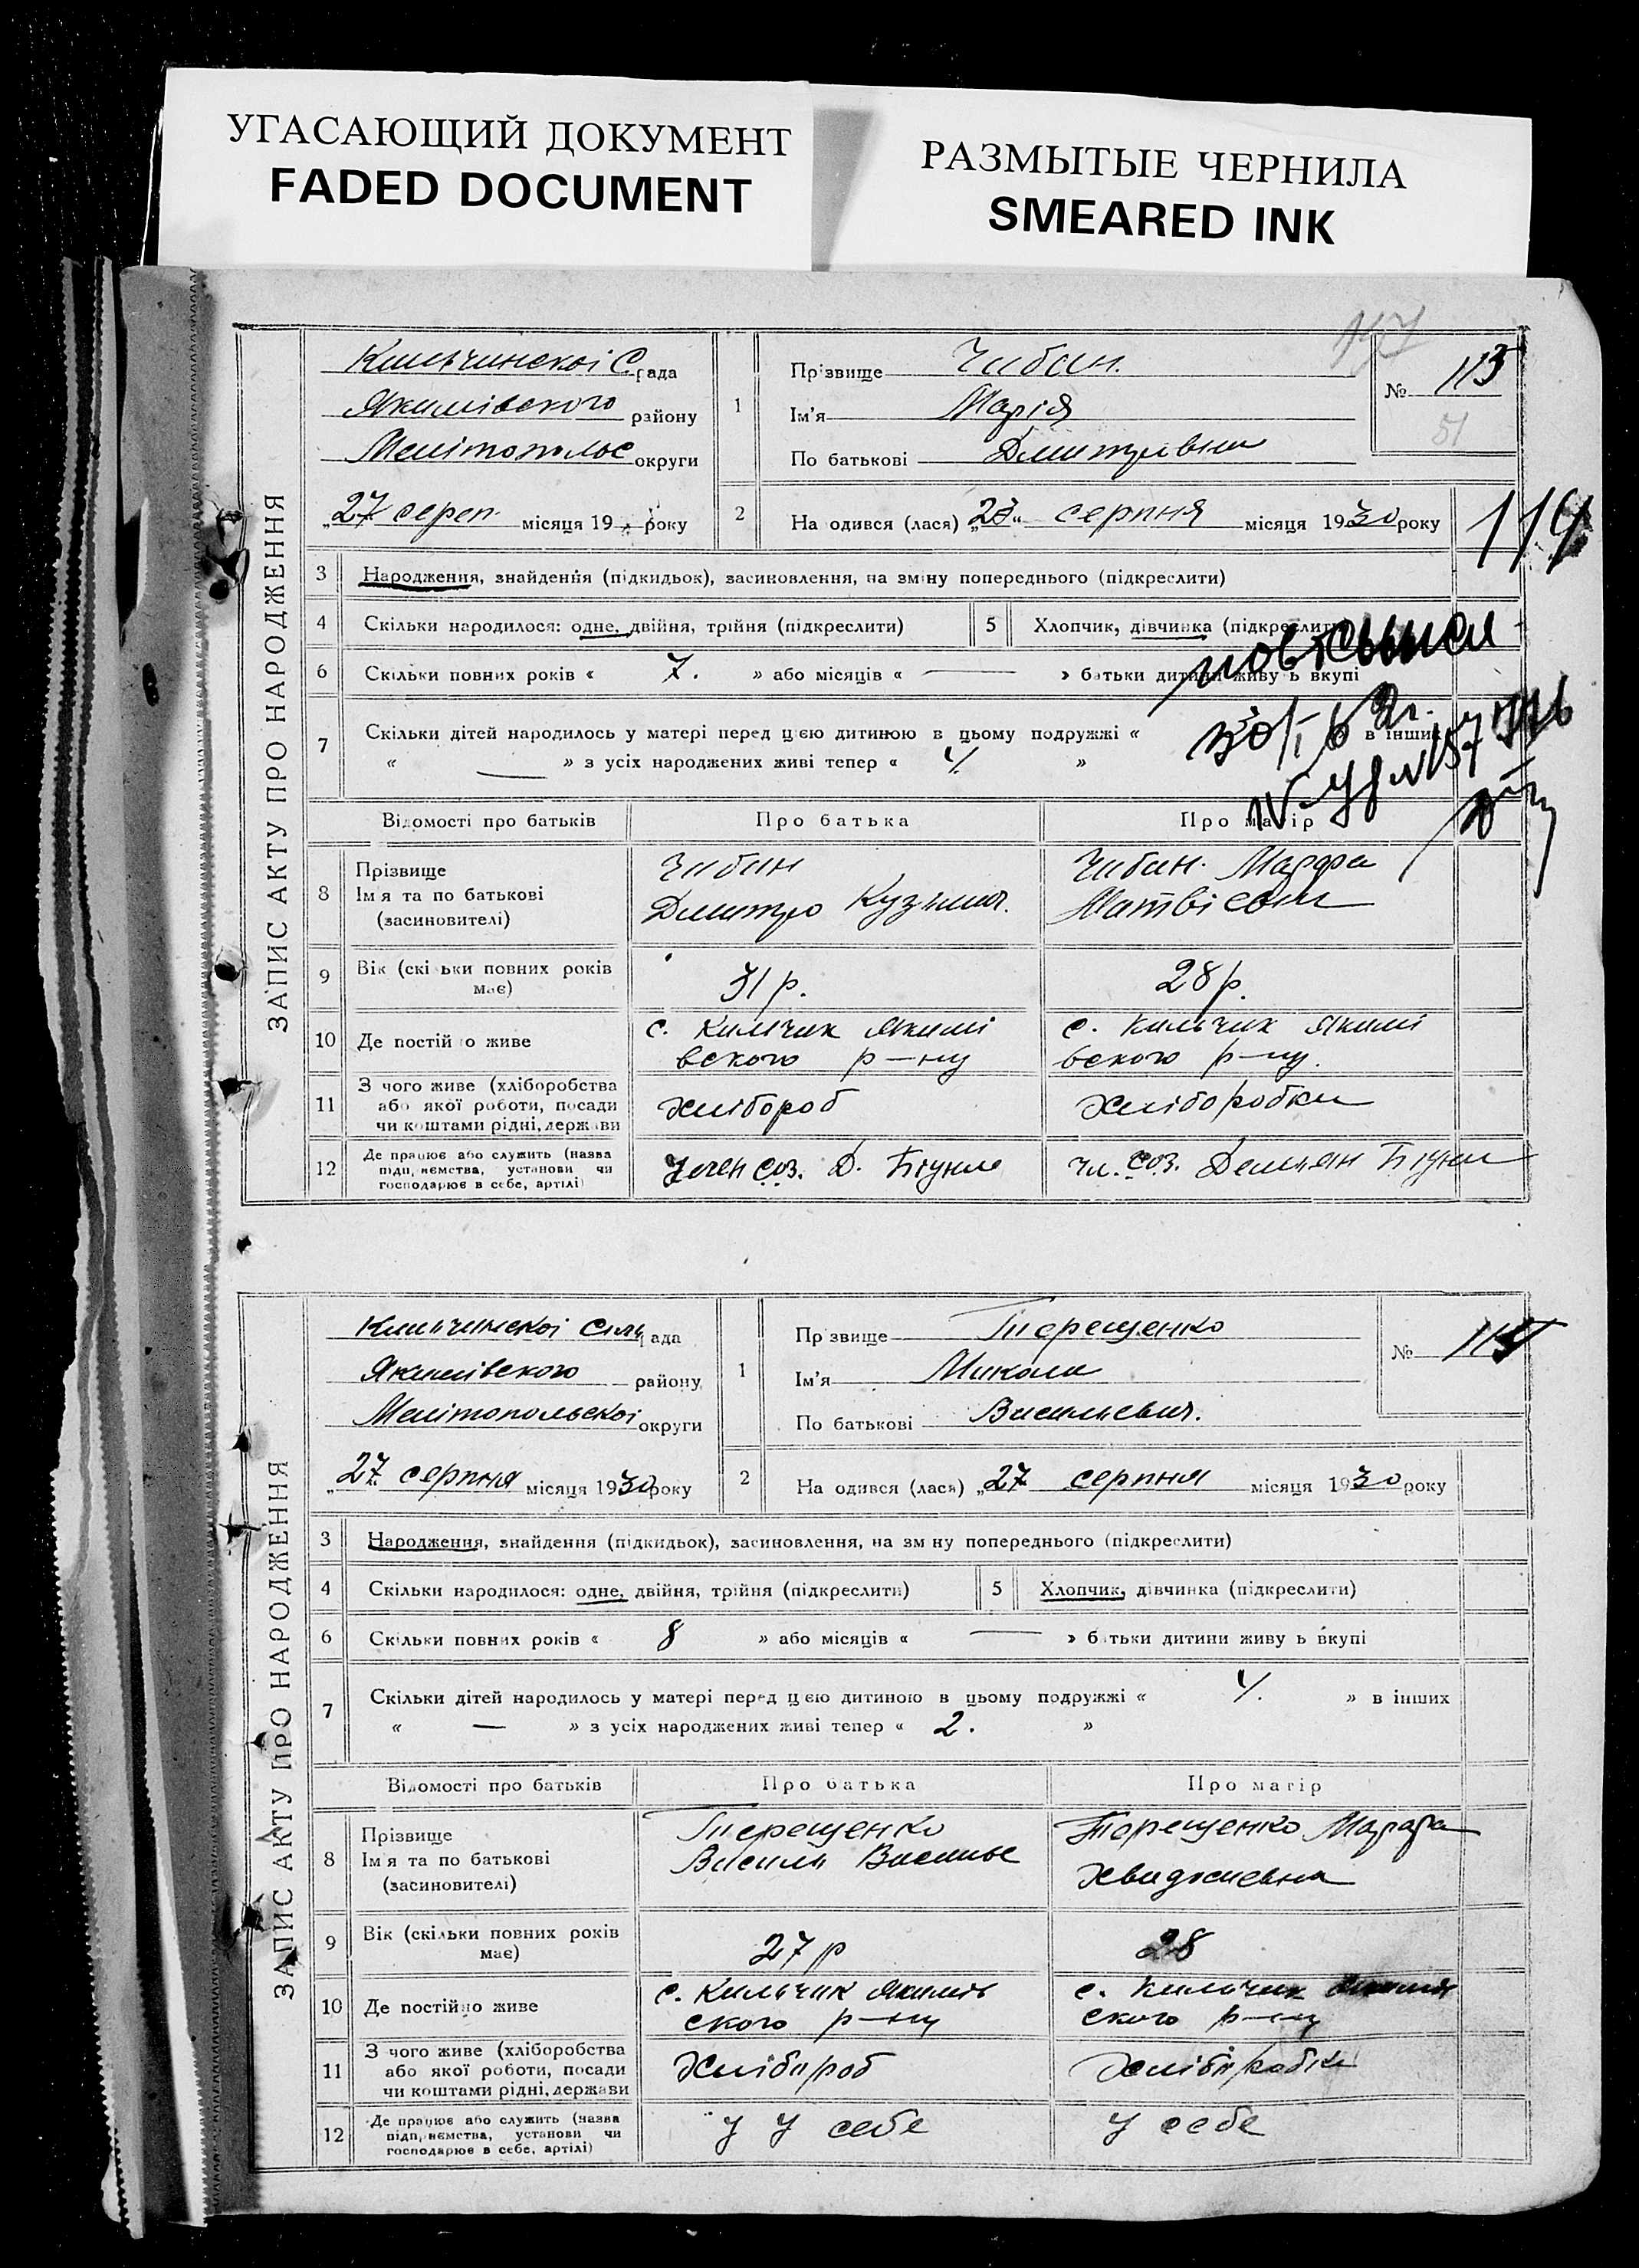 УГАСАЮЩИЙ ДОКУМЕНТ
FADED DOCUMENT
РАЗМЫТЫЕ ЧЕРНИЛА
SMEARED INK
ЗАПИС АКТУ ПРО НАРОДЖЕННЯ
Кильчинскоі С. рада
Якимівского району
Мелітопольс округи
„27 серп. місяця 19 року
1
Прізвище Чибин.
Ім'я Марія
По батькові Дмитрівна
№ 113
51
114
2
На одився (лася) „23“ серпня місяця 1930 року
3 Народження, знайдення (підкидьок), засиновлення, на зміну попереднього (підкреслити)
4 Скільки народилося: одне, двійня, трійня (підкреслити)
5 Хлопчик, дівчинка (підкреслити)
6 Скільки повних років « 7. » або місяців « — » батьки дитини живу ь вкупі
7 Скільки дітей народилось у матері перед цією дитиною в цьому подружжі « в інших
« — » з усіх народжених живі тепер « 4. »
Відомості про батьків Про батька Про матір
8 Прізвище
Ім я та по батькові
(засиновителі)
Чибин
Дмитро Кузьмич.
Чибин. Марфа
Матвієвна
9 Вік (скі ьки повних років
має)
31 р.
28 р.
10 Де постій о живе
с. Кильчик Якимі
вского р—ну
с. Кильчик Якимі
вского р—ну.
11 З чого живе (хліборобства
або якої роботи, посади
чи коштами рідні, держави
Хлібороб
Хліборобка
12 Де працює або служить (назва
підп, иємства, установи чи
господарює в себе, артілі)
Член Соз. Д.
Чл. Соз. Демьян
ЗАПИС АКТУ ПРО НАРОДЖЕННЯ
Кильчинскоі Сіль рада
Якимівского району
Мелітопольскоі округи
„27 серпня місяця 1930 року
1
Пр звище Терещенко
Ім'я Микола
По батькові Васильевич.
№ 114
2
На одився (лася) „27 серпня місяця 1930 року
3 Народження, знайдення (підкидьок), засиновлення, на зм ну попереднього (підкреслити)
4 Скільки народилося: одне, двійня, трійня (підкреслити)
5 Хлопчик, дівчинка (підкреслити)
6 Скільки повних років « 8 » або місяців « — » б тьки дитини живу ь вкупі
7 Скільки дітей народилось у матері перед цією дитиною в цьому подружжі « 4. » в інших
« — » з усіх народжених живі тепер « 2. »
Відомості про батьків Про батька Про матір
8 Прізвище
Ім я та по батькові
(засиновителі)
Терещенко
Василь Василье
Терещенко Марфа
9 Вік (скільки повних років
має)
27 р
28
10 Де постійно живе
с. Кильчик Якимів
ского р—ну
с. Кильчик
ского р—ну
11 З чого живе (хліборобства
або якої роботи, посади
чи коштами рідні, держави
Хлібороб
Хліборобка
12 Де працює або служить (назва
підп, иємства, установи чи
господарює в себе, артілі)
У У себе
У себе